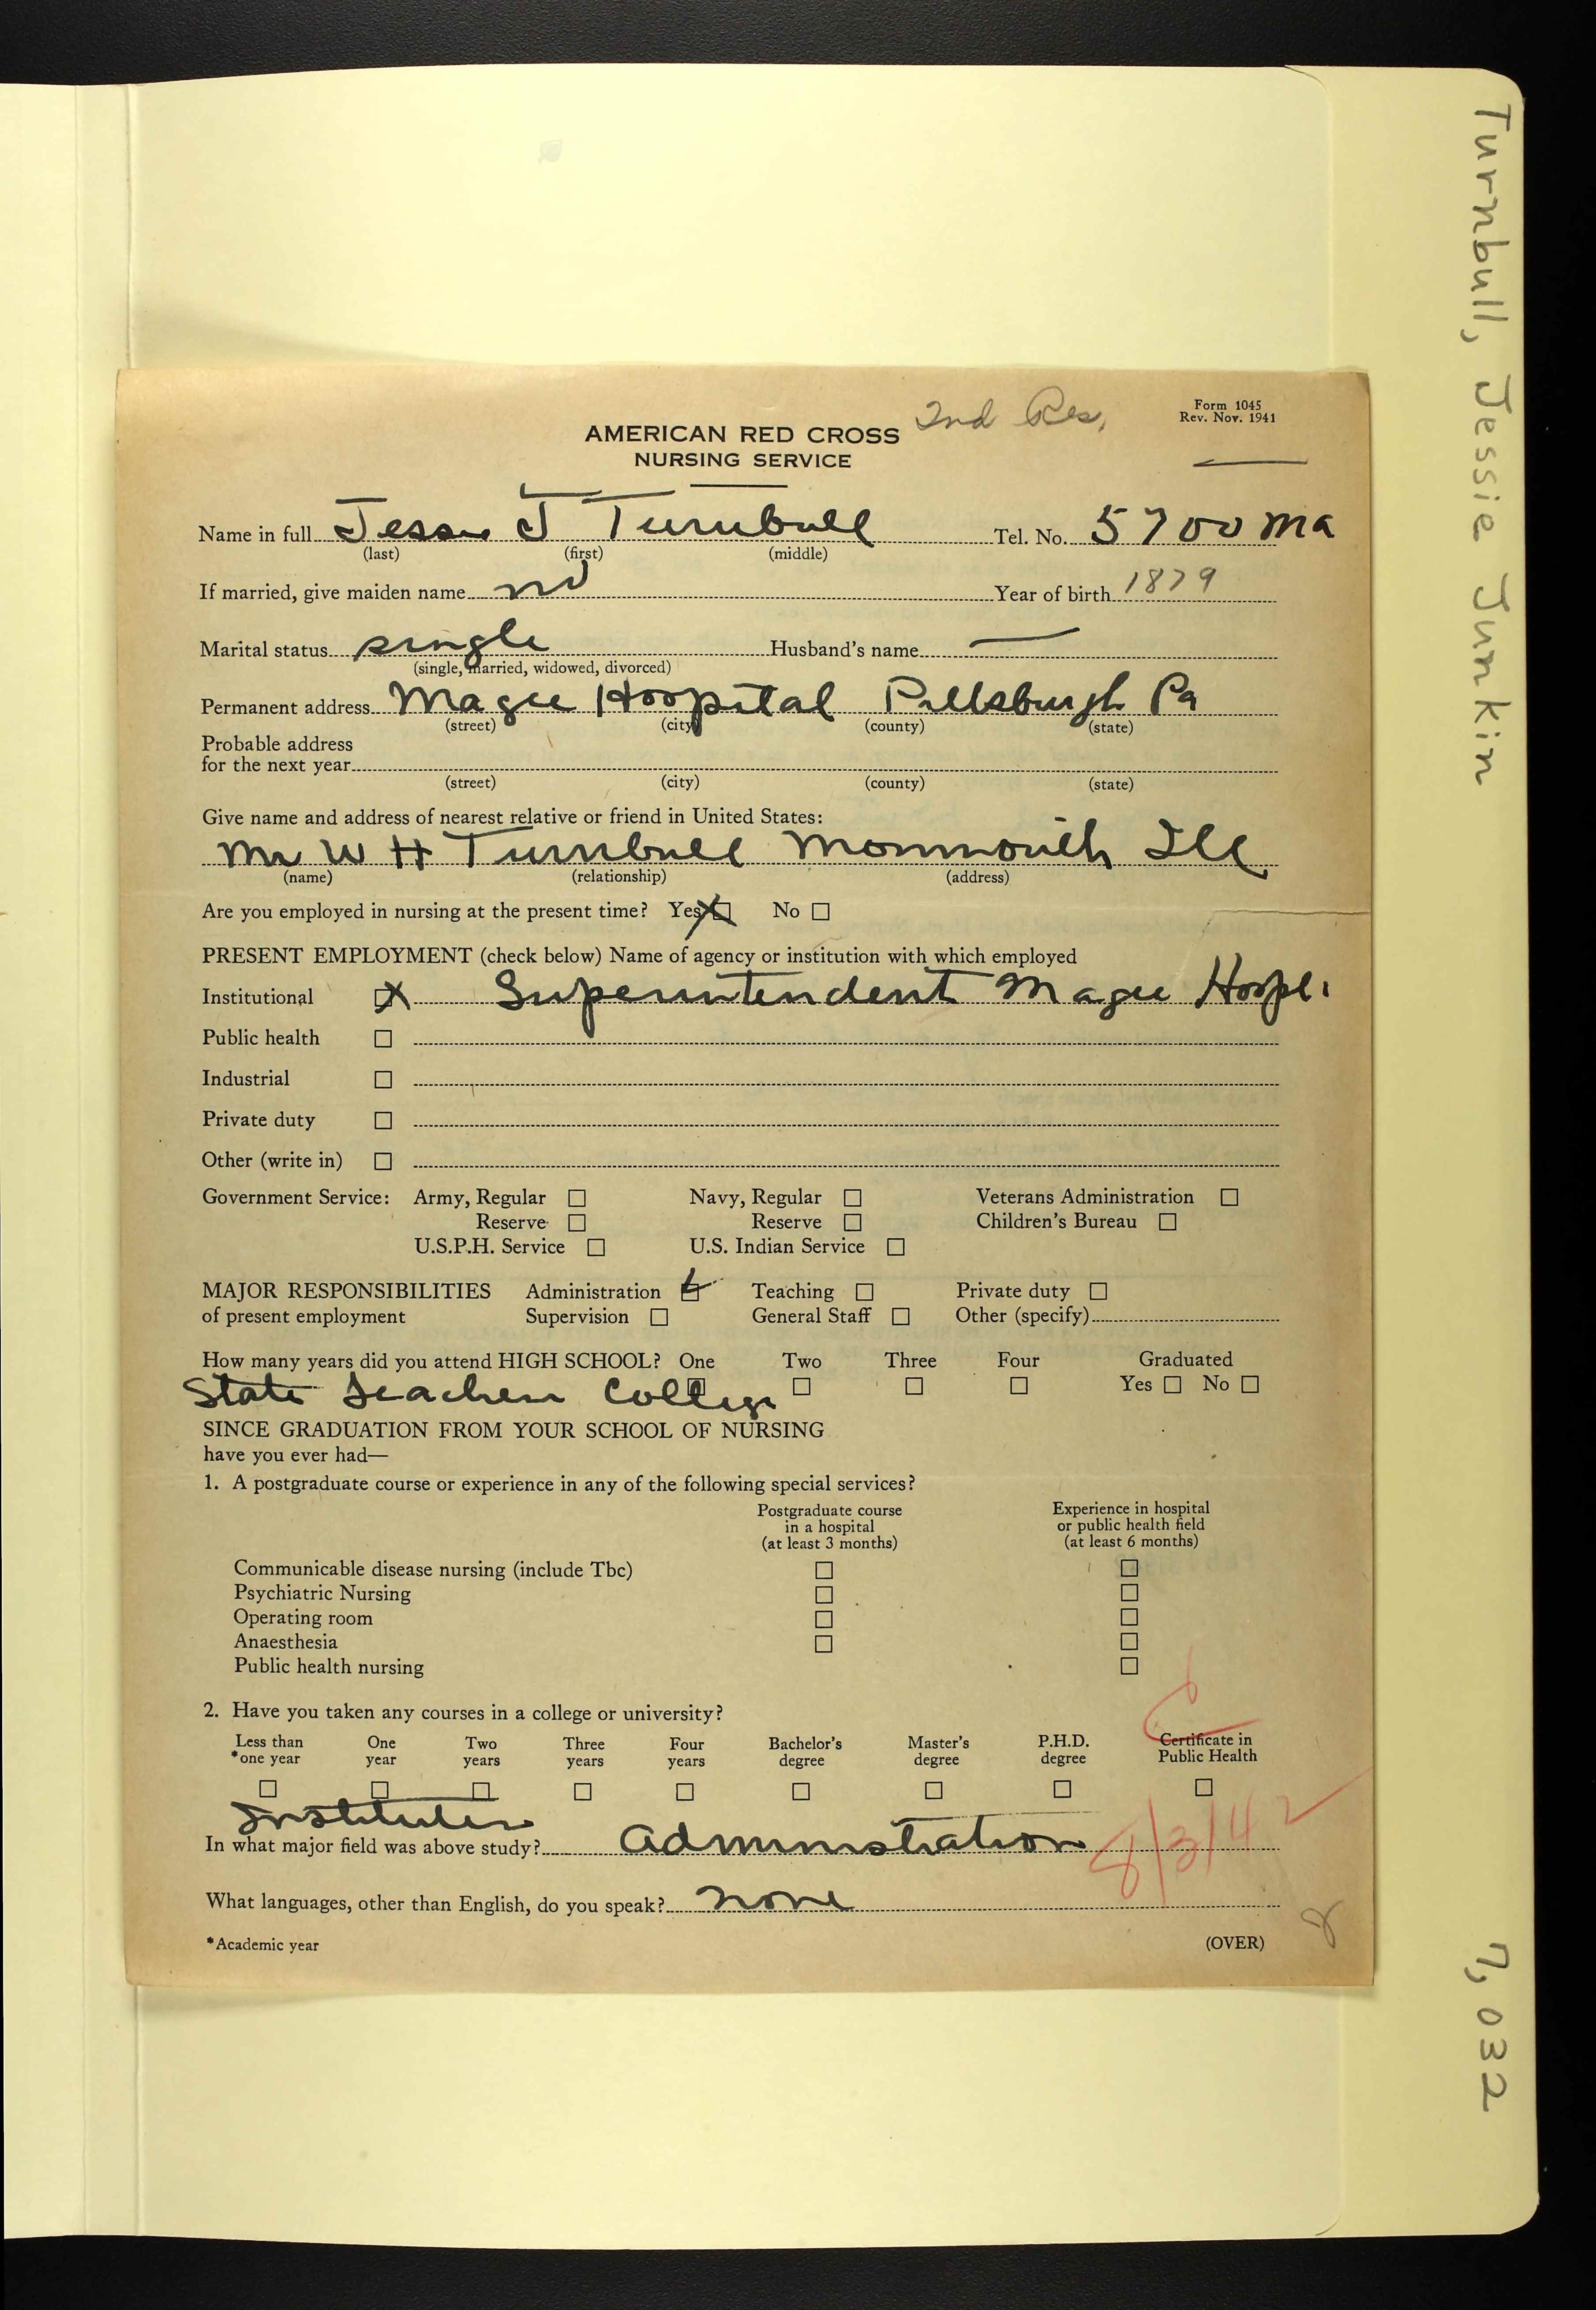 Turnbull, Jessie Junkin 7,032
2nd Res.
Form 1045
Rev. Nov. 1941
AMERICAN RED CROSS
NURSING SERVICE
Name in full Jessie J Turnbull Tel. No. 5700 Ma
(last) (first) (middle)
If married, give maiden name no Year of birth 1879
Marital status single Husband's name —
(single, married, widowed, divorced)
Permanent address Magee Hospital Pittsburgh Pa
(street) (city) (county) (state)
Probable address
for the next year
(street) (city) (county) (state)
Give name and address of nearest relative or friend in United States:
Mr W H Turnbull Monmouth Ill
(name) (relationship) (address)
Are you employed in nursing at the present time? Yes X No
PRESENT EMPLOYMENT (check below) Name of agency or institution with which employed
Institutional X Superintendent Magee Hospl.
Public health
Industrial
Private duty
Other (write in)
Government Service: Army, Regular Navy, Regular Veterans Administration
Reserve Reserve Children's Bureau
U.S.P.H. Service U.S. Indian Service
MAJOR RESPONSIBILITIES Administration Teaching Private duty
of present employment Supervision General Staff Other (specify)
How many years did you attend HIGH SCHOOL? One Two Three Four Graduated
Yes No
State Teachers College
SINCE GRADUATION FROM YOUR SCHOOL OF NURSING
have you ever had—
1. A postgraduate course or experience in any of the following special services?
Postgraduate course Experience in hospital
in a hospital or public health field
(at least 3 months) (at least 6 months)
Communicable disease nursing (include Tbc)
Psychiatric Nursing
Operating room
Anaesthesia
Public health nursing
2. Have you taken any courses in a college or university?
Less than One Two Three Four Bachelor's Master's P.H.D. Certificate in
*one year year years years years degree degree degree Public Health
Institutes
In what major field was above study? Administration 8/3/42
What languages, other than English, do you speak? none
*Academic year (OVER)